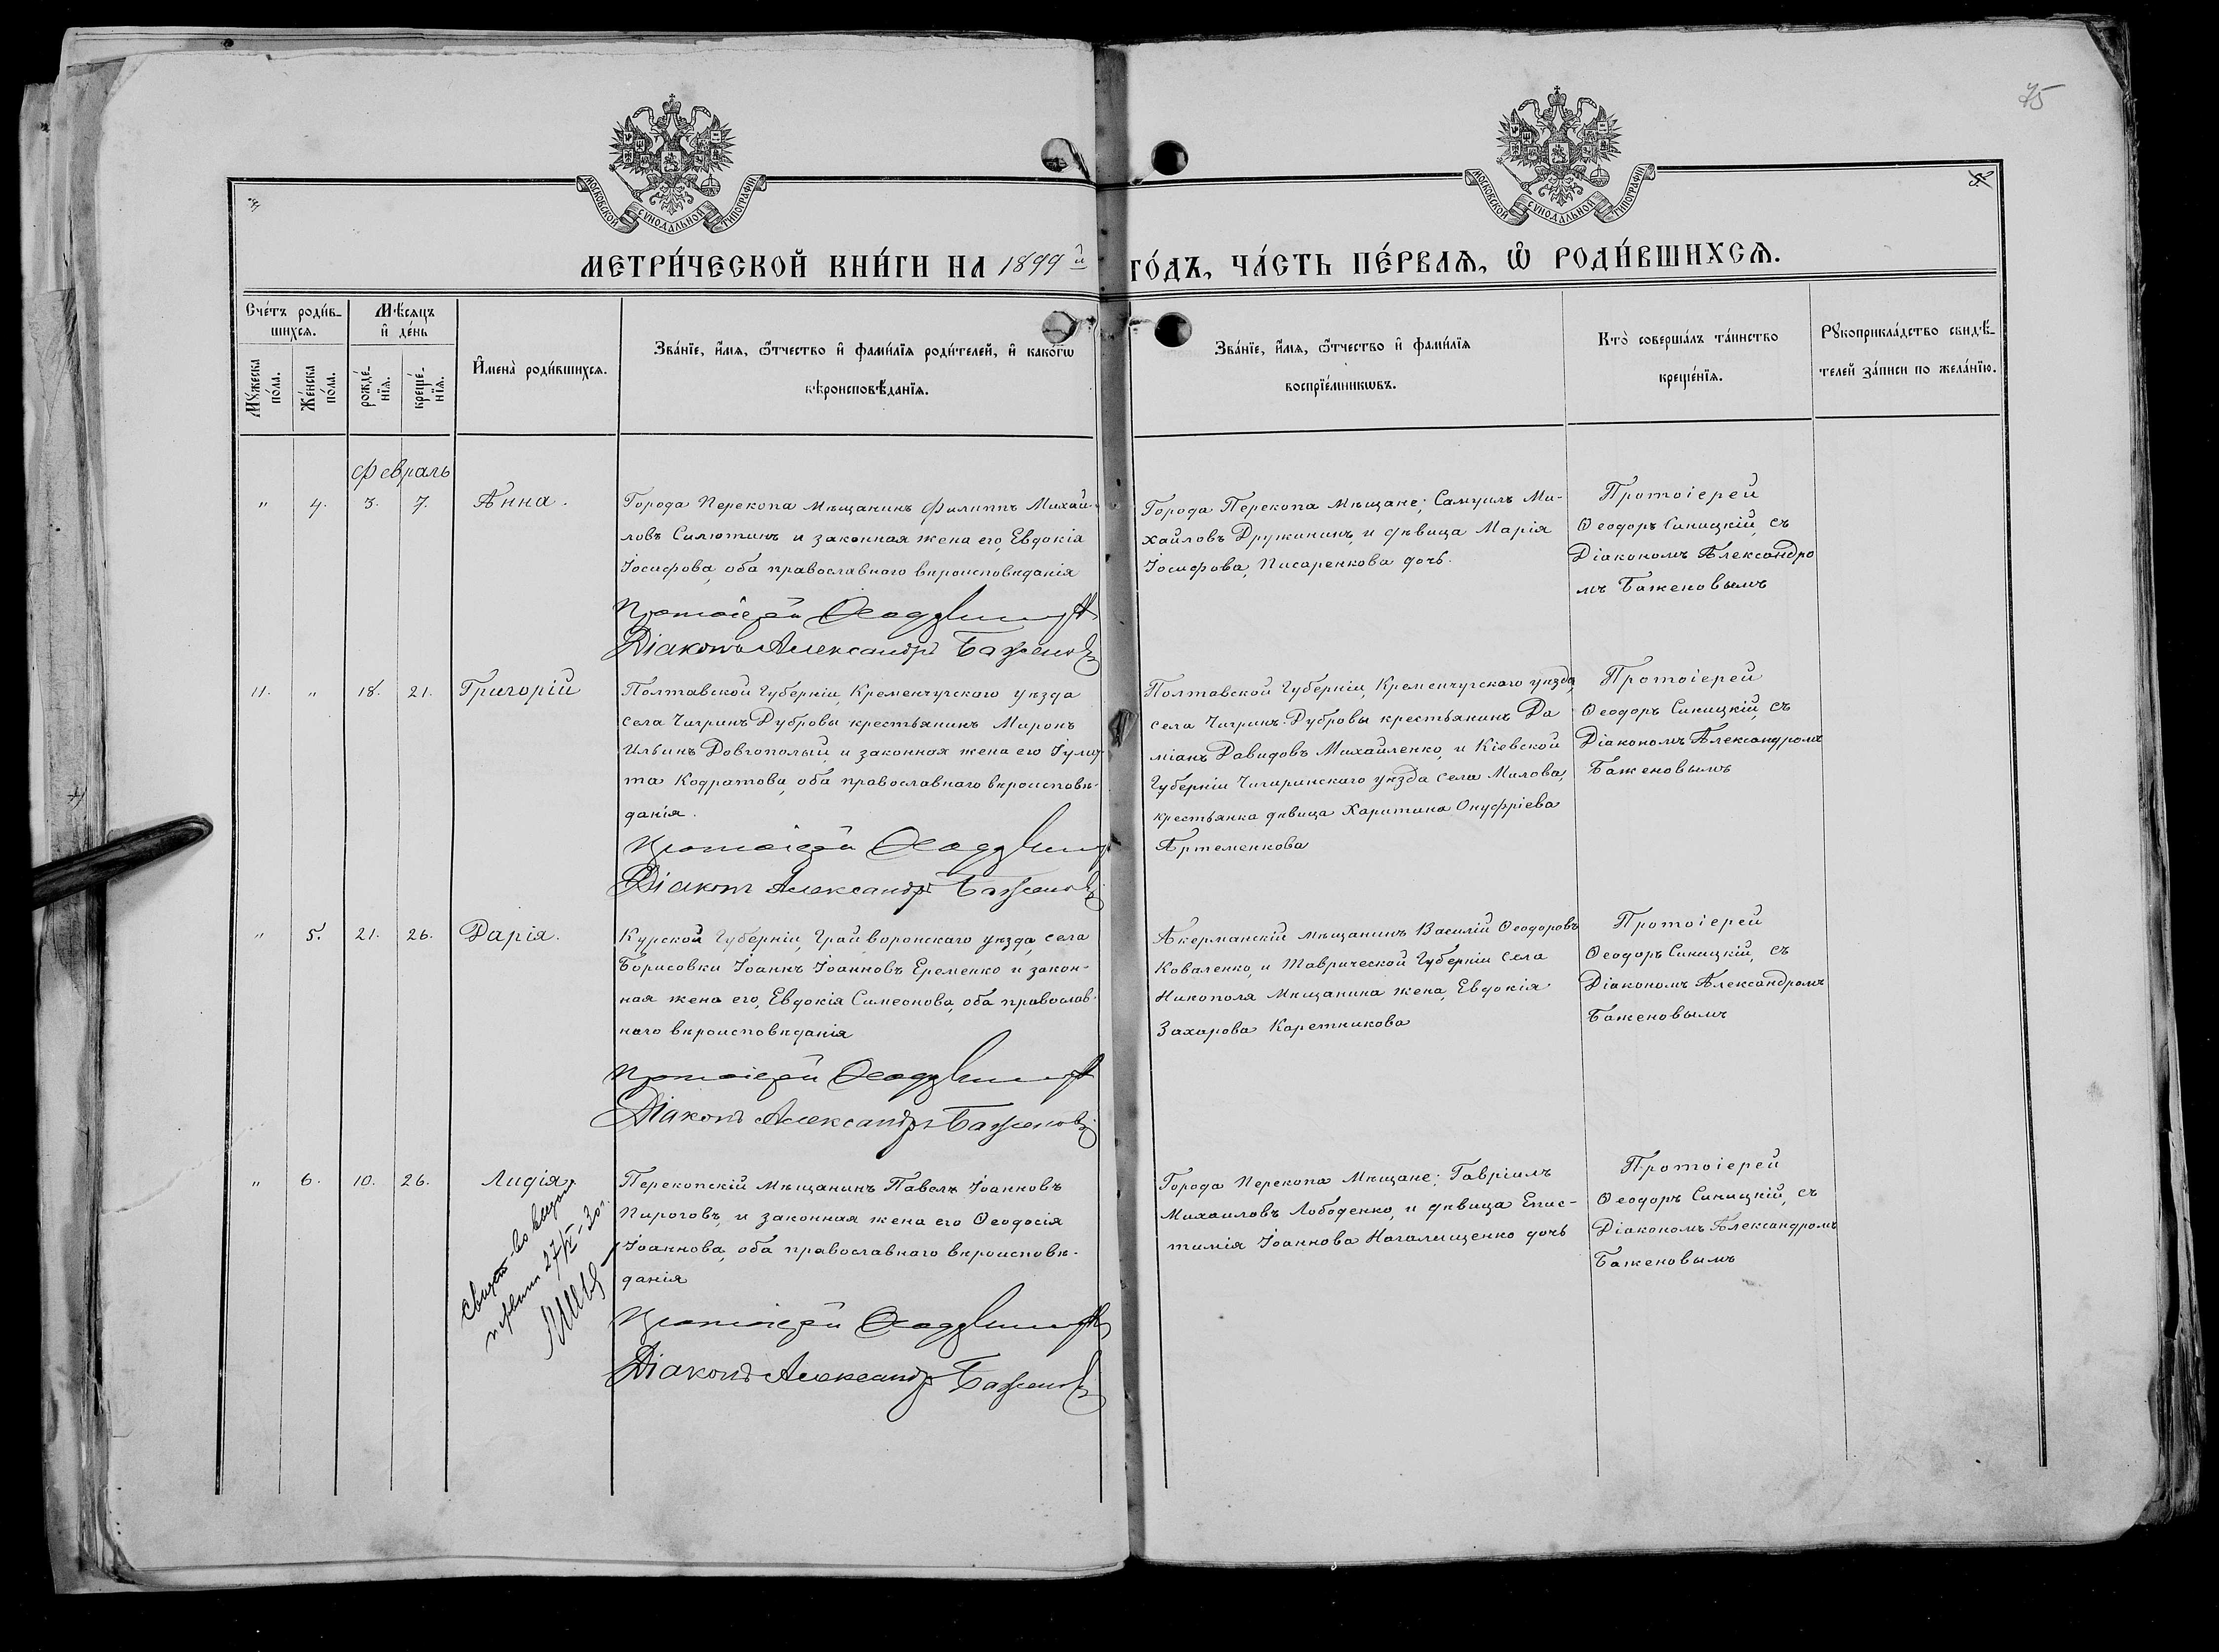 75
МОСКОВСКОЙ СѴНОДАЛЬНОЙ ТИПОГРАФІИ
МОСКОВСКОЙ СѴНОДАЛЬНОЙ ТИПОГРАФІИ
МЕТРИ́ЧЕСКОЙ КНИ́ГИ НА 1899й ГО́ДЪ, ЧА́СТЬ ПЕ́РВАѦ, Ѽ РОДИ́ВШИХСѦ.
Сче́тъ роди́в-
шихсѧ.
Мꙋжеска по́ла.
Же́нска по́ла.
Мѣ́сѧцъ
и҆ де́нь
рожде́-
нїѧ.
креще́-
нїѧ.
И҆мена̀ роди́вшихсѧ.
Зва́нїе, и҆́мѧ, ѻ҆́тчество и҆ фами́лїѧ роди́телей, и҆ како́гѡ
вѣроисповѣ́данїѧ.
Зва́нїе, и҆́мѧ, ѻ҆́тчество и҆ фами́лїѧ
воспрїе́мникѡвъ.
Кто̀ соверша́лъ та́инство
креще́нїѧ.
Рꙋкоприкла́дство свидѣ́-
телей за́писи по жела́нїю.
Февраль
" 4. 3. 7. Анна.
Города Перекопа мѣщанинъ Филиппъ Михай-
ловъ Силютинъ и законная жена его, Евдокія
Іосифова, оба православнаго вѣроисповѣданія
Протоіерей Ѳеодоръ Синицкій
Діаконъ Александръ Баженовъ
Города Перекопа мѣщане; Самуилъ Ми-
хайловъ Дружининъ, и дѣвица Марія
Іосифова, Писаренкова дочь.
Протоіерей
Ѳеодоръ Синицкій, съ
Діакономъ Александро
мъ Баженовымъ
11. " 18. 21. Григорій
Полтавской Губерніи, Кременчугскаго уѣзда
села Чигринъ Дубровы крестьянинъ Миронъ
Ильинъ Довгополый, и законная жена его Іулит-
та Кодратова, оба православнаго вѣроисповѣ-
данія.
Протоіерей Ѳеодоръ Синицкій
Діаконъ Александръ Баженовъ
Полтавской Губерніи, Кременчугскаго уѣзда,
села Чигринъ-Дубровы крестьянинъ Да
міанъ Давидовъ Михайленко, и Кіевской
Губерніи Чигиринскаго уѣзда села Милова,
крестьянка дѣвица Харитина Онуфріева
Артеменкова
Протоіерей
Ѳеодоръ Синицкій, съ
Діакономъ Александромъ
Баженовымъ
" 5. 21. 26. Дарія.
Курской Губерніи, Грайворонскаго уѣзда, села
Борисовки Іоаннъ Іоанновъ Еременко и закон-
ная жена его, Евдокія Симеонова, оба православ-
наго вѣроисповѣданія
Протоіерей Ѳеодоръ Синицкій
Діаконъ Александръ Баженовъ
Акерманскій мѣщанинъ Василій Ѳеодоровъ
Коваленко, и Таврической Губерніи села
Никополя мѣщанина жена, Евдокія
Захарова Каретникова
Протоіерей
Ѳеодоръ Синицкій, съ
Діакономъ Александромъ
Баженовымъ
" 6. 10. 26. Лидія.
27/IV-30г.
Перекопскій мѣщанинъ Павелъ Іоанновъ
Пироговъ, и законная жена его Ѳеодосія
Іоаннова, оба православнаго вѣроисповѣ-
данія
Протоіерей Ѳеодоръ Синицкій
Діаконъ Александръ Баженовъ
Города Перекопа мѣщане; Гавріилъ
Михаиловъ Лободенко, и дѣвица Епис-
тимія Іоаннова Нагалищенко дочь
Протоіерей
Ѳеодоръ Синицкій, съ
Діакономъ Александромъ
Баженовымъ